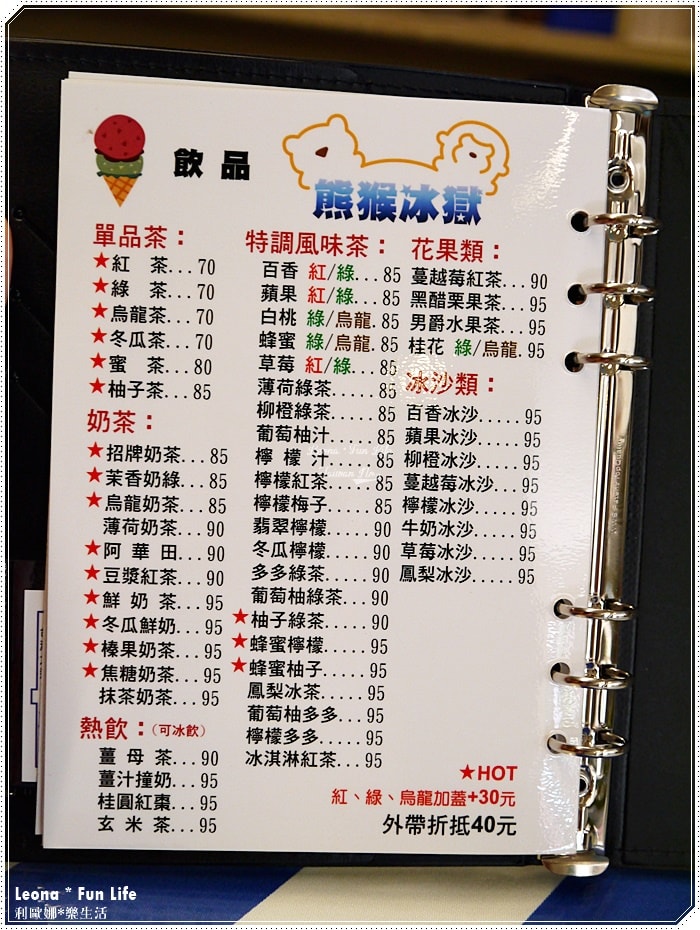 飲品
熊猴冰獄
單品茶：
★紅 茶...70
★綠 茶...70
★烏龍茶...70
★冬瓜茶...70
★蜜 茶...80
★柚子茶...85
奶茶：
★招牌奶茶...85
★茉香奶綠...85
★烏龍奶茶...85
薄荷奶茶...90
★阿 華 田...90
★豆漿紅茶...90
★鮮 奶 茶...95
★冬瓜鮮奶...95
★榛果奶茶...95
★焦糖奶茶...95
抹茶奶茶...95
熱飲：(可冰飲)
薑 母 茶...90
薑汁撞奶...95
桂圓紅棗...95
玄 米 茶...95
特調風味茶：
百香 紅/綠...85
蘋果 紅/綠...85
白桃 綠/烏龍.85
蜂蜜 綠/烏龍.85
草莓 紅/綠...85
薄荷綠茶.....85
柳橙綠茶.....85
葡萄柚汁.....85
檸 檬 汁.....85
檸檬紅茶.....85
檸檬梅子.....85
翡翠檸檬.....90
冬瓜檸檬.....90
多多綠茶.....90
葡萄柚綠茶...90
★柚子綠茶.....90
★蜂蜜檸檬.....95
★蜂蜜柚子.....95
鳳梨冰茶.....95
葡萄柚多多...95
檸檬多多.....95
冰淇淋紅茶...95
花果類：
蔓越莓紅茶...90
黑醋栗果茶...95
男爵水果茶...95
桂花 綠/烏龍.95
冰沙類：
百香冰沙.....95
蘋果冰沙.....95
柳橙冰沙.....95
蔓越莓冰沙...95
檸檬冰沙.....95
牛奶冰沙.....95
草莓冰沙.....95
鳳梨冰沙.....95
★HOT
紅、綠、烏龍加蓋+30元
外帶折抵40元
Leona * Fun Life
利歐娜*樂生活